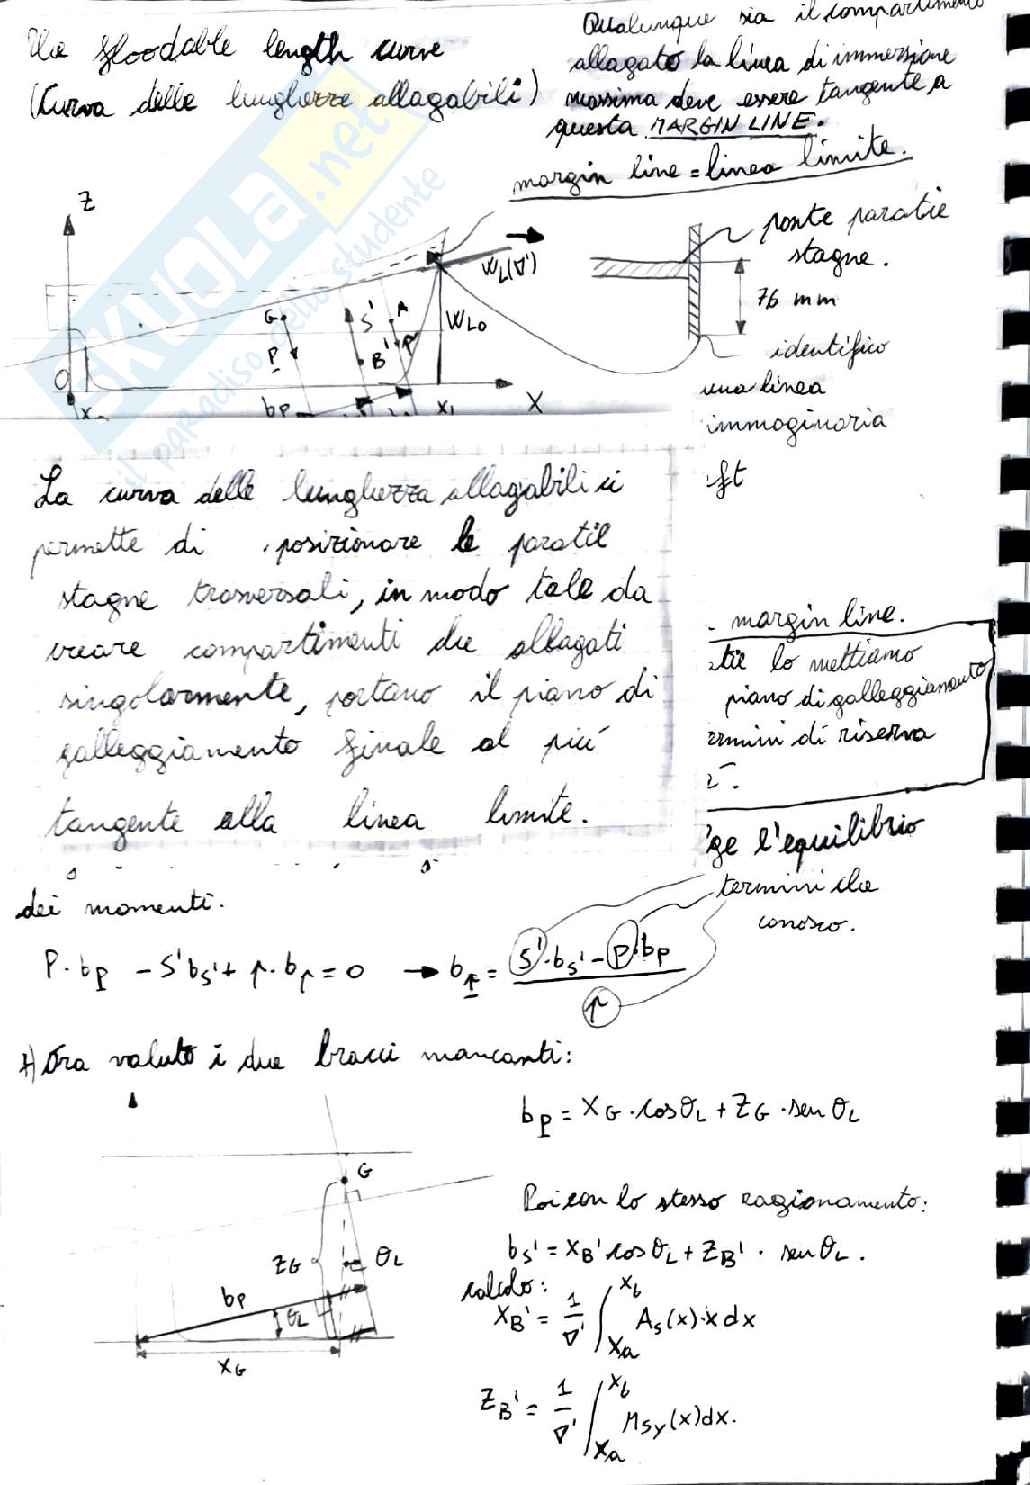 The floodable length curve
(Curva delle lunghezze allagabili)
Qualunque sia il compartimento
allagato la linea di immersione
massima deve essere tangente a
questa MARGIN LINE.
margin line = linea limite.
SKUOLA.net
il paradiso dello studente
Z
WL(∇')
ponte paratie
stagne.
76 mm
G
S'
A
WL0
P
B'
p
identifico
una linea
immaginaria
O
bp
X1
X
ft
La curva delle lunghezza allagabili ci
permette di posizionare le paratie
stagne trasversali, in modo tale da
creare compartimenti che allagati
singolarmente, portano il piano di
galleggiamento finale al più
tangente alla linea limite.
margin line.
tie lo mettiamo
piano di galleggiamento
ermini di riserva
ge l'equilibrio
dei momenti.
termini che
conosco.
P·bP - S'bS' + p·bp = 0 → bp = S'·bS' - P·bP / p
Ora valuto i due bracci mancanti:
bP = XG·cosθL + ZG·senθL
G
Poi con lo stesso ragionamento:
ZG
θL
bS' = XB' cosθL + ZB'·senθL.
bP
θL
calcolo:
XB' = 1/∇' ∫ Xa Xb As(x)·x dx
XG
ZB' = 1/∇' ∫ Xa Xb Msy(x)dx.